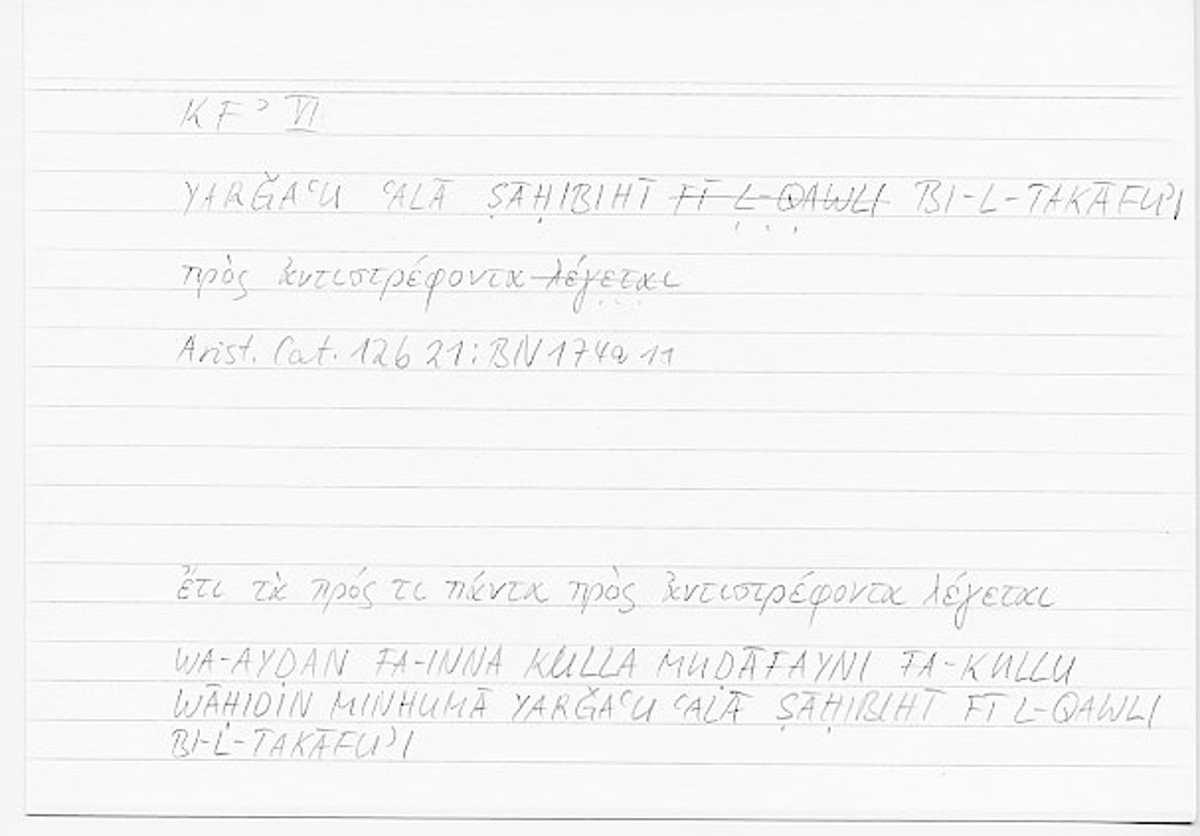 KFʾ VI
YARǦAʿU ʿALĀ ṢĀḤIBIHĪ FĪ L-QAWLI BI-L-TAKĀFUʾI
πρὸς ἀντιστρέφοντα λέγεται
Arist. Cat. 12b 21: BN 174a 11
ἔτι τὰ πρός τι πάντα πρὸς ἀντιστρέφοντα λέγεται
WA-AYḌAN FA-INNA KULLA MUḌĀFAYNI FA-KULLU
WĀḤIDIN MINHUMĀ YARǦAʿU ʿALĀ ṢĀḤIBIHĪ FĪ L-QAWLI
BI-L-TAKĀFUʾI